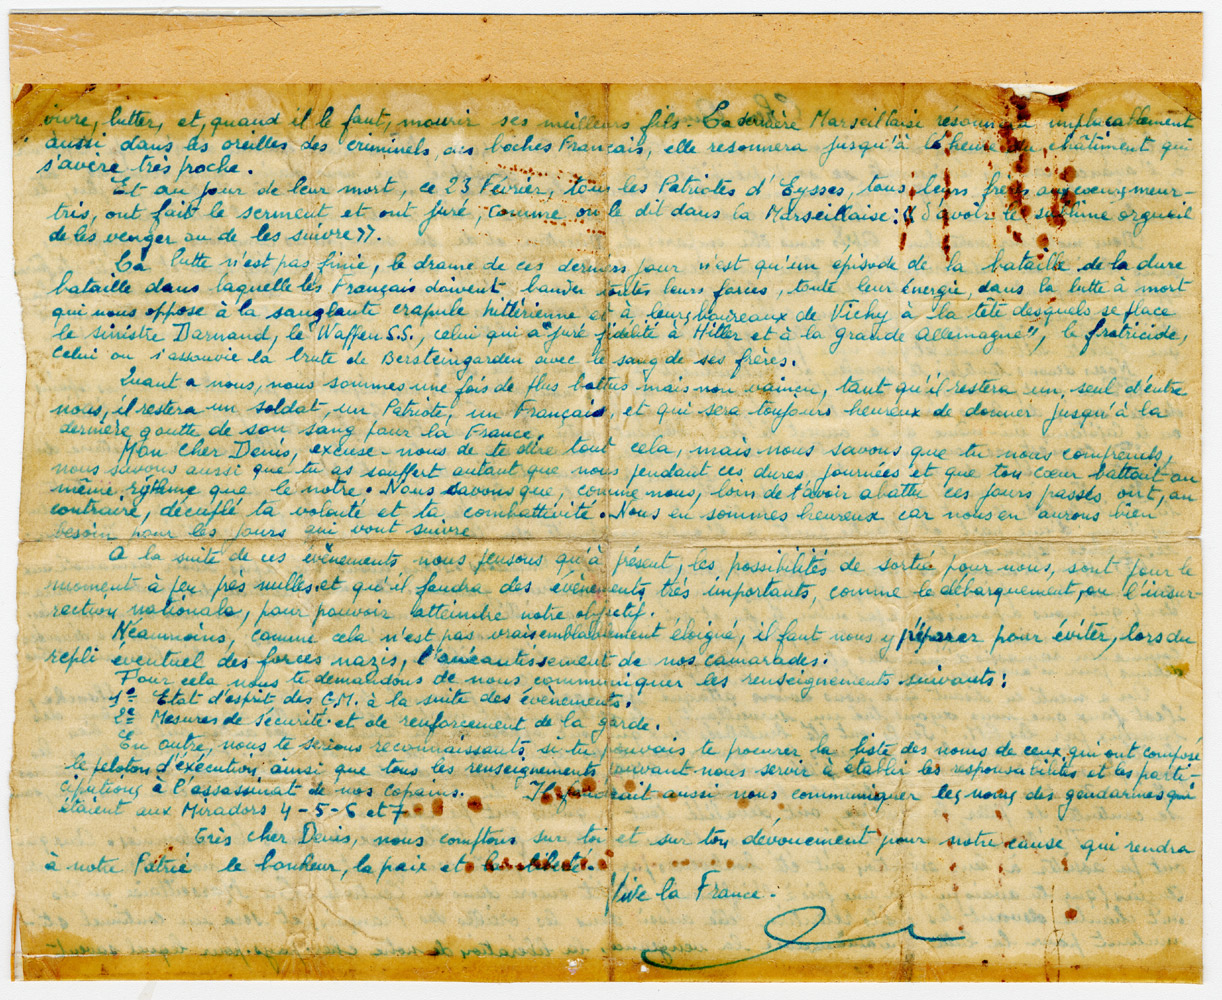 vivre, lutter, et, quand il le faut, mourir ses meilleurs fils. La dernière Marseillaise résonnera implacablement
aussi dans les oreilles des criminels, des boches Français, elle resonnera jusqu'à l'heure du châtiment qui
s'avère très proche.
Et au jour de leur mort, ce 23 Février, tous les Patriotes d'Eysses, tous leurs frères aux coeurs meur-
tris, ont fait le serment et ont juré, comme on le dit dans la Marseillaise: « d'avoir le sublime orgueil
de les venger ou de les suivre».
La lutte n'est pas finie, le drame de ces derniers jour n'est qu'un episode de la bataille de la dure
bataille dans laquelle les Français doivent bander toutes leurs forces, toute leur énergie, dans la lutte à mort
qui nous oppose à la sanglante crapule hitlérienne et à leurs boureaux de Vichy à la tête desquels se place
le sinistre Darnand, le Waffen S.S., celui qui a "juré fidélité à Hitler et à la grande Allemagne", le fratricide,
celui ou s'assouvie la brute de Bersteingarden avec le sang de ses frères.
Quant a nous, nous sommes une fois de plus battus mais non vaincu, tant qu'il restera un seul d'entre
nous, il restera un soldat, un Patriote, un Français, et qui sera toujours heureux de donner jusqu'à la
dernière goutte de son sang pour la France.
Mon cher Denis, excuse-nous de te dire tout cela, mais nous savons que tu nous comprends,
nous savons aussi que tu as souffert autant que nous pendant ces dures journées et que ton cœur battait au
même rythme que le notre. Nous savons que, comme nous, loin de t'avoir abattu ces jours passés ont, au
contraire, décuplé ta volonté et ta combattivité. Nous en sommes heureux car nous en aurons bien
besoin pour les jours qui vont suivre
A la suite de ces évènements nous pensons qu'à présent, les possibilités de sortie pour nous, sont pour le
moment à peu près nulles et qu'il faudra des évènements très importants, comme le débarquement, ou l'insur-
rection nationale, pour pouvoir atteindre notre objectif.
Néanmoins, comme cela n'est pas vraisemblablement éloigné, il faut nous y préparer pour éviter, lors du
repli éventuel des forces nazis, l'anéantissement de nos camarades.
Pour cela nous te demandons de nous communiquer les renseignements suivants:
1º Etat d'esprit des G.M. à la suite des évènements.
2º Mesures de sécurité et de renforcement de la garde.
En outre, nous te serions reconnaissants, si tu pouvais te procurer la liste des noms de ceux qui ont composé
le peloton d'exécution, ainsi que tous les renseignements pouvant nous servir à établir les responsabilités et les parti-
cipations à l'assassinat de nos copains. Il faudrait aussi nous communiquer les noms des gendarmes qui
étaient aux Miradors 4-5-6 et 7
Très cher Denis, nous comptons sur toi et sur ton dévouement pour notre cause, qui rendra
à notre Patrie le bonheur, la paix et la liberté.
Vive la France.